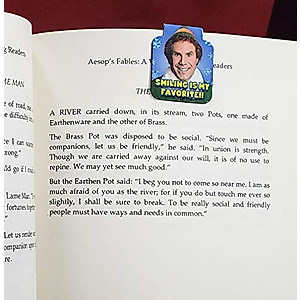 ng Readers
Aesop's Fables: A
eaders
SMILING IS MY
FAVORITE!!
THE
ME MAN
A RIVER carried down, in its stream, two Pots, one made of
Earthenware and the other of Brass.
The Brass Pot was disposed to be social. "Since we must be
companions, let us be friendly," he said. "In union is strength.
Though we are carried away against our will, it is of no use to
repine. We may yet see much good."
But the Earthen Pot said: "I beg you not to come so near me. I am as
much afraid of you as the river; for if you do but touch me ever so
slightly, I shall be sure to break. To be really social and friendly
people must have ways and needs in common."
of road,
difficulty in
ld go if I
Lame Man.
fortunes together
Let us render
companion